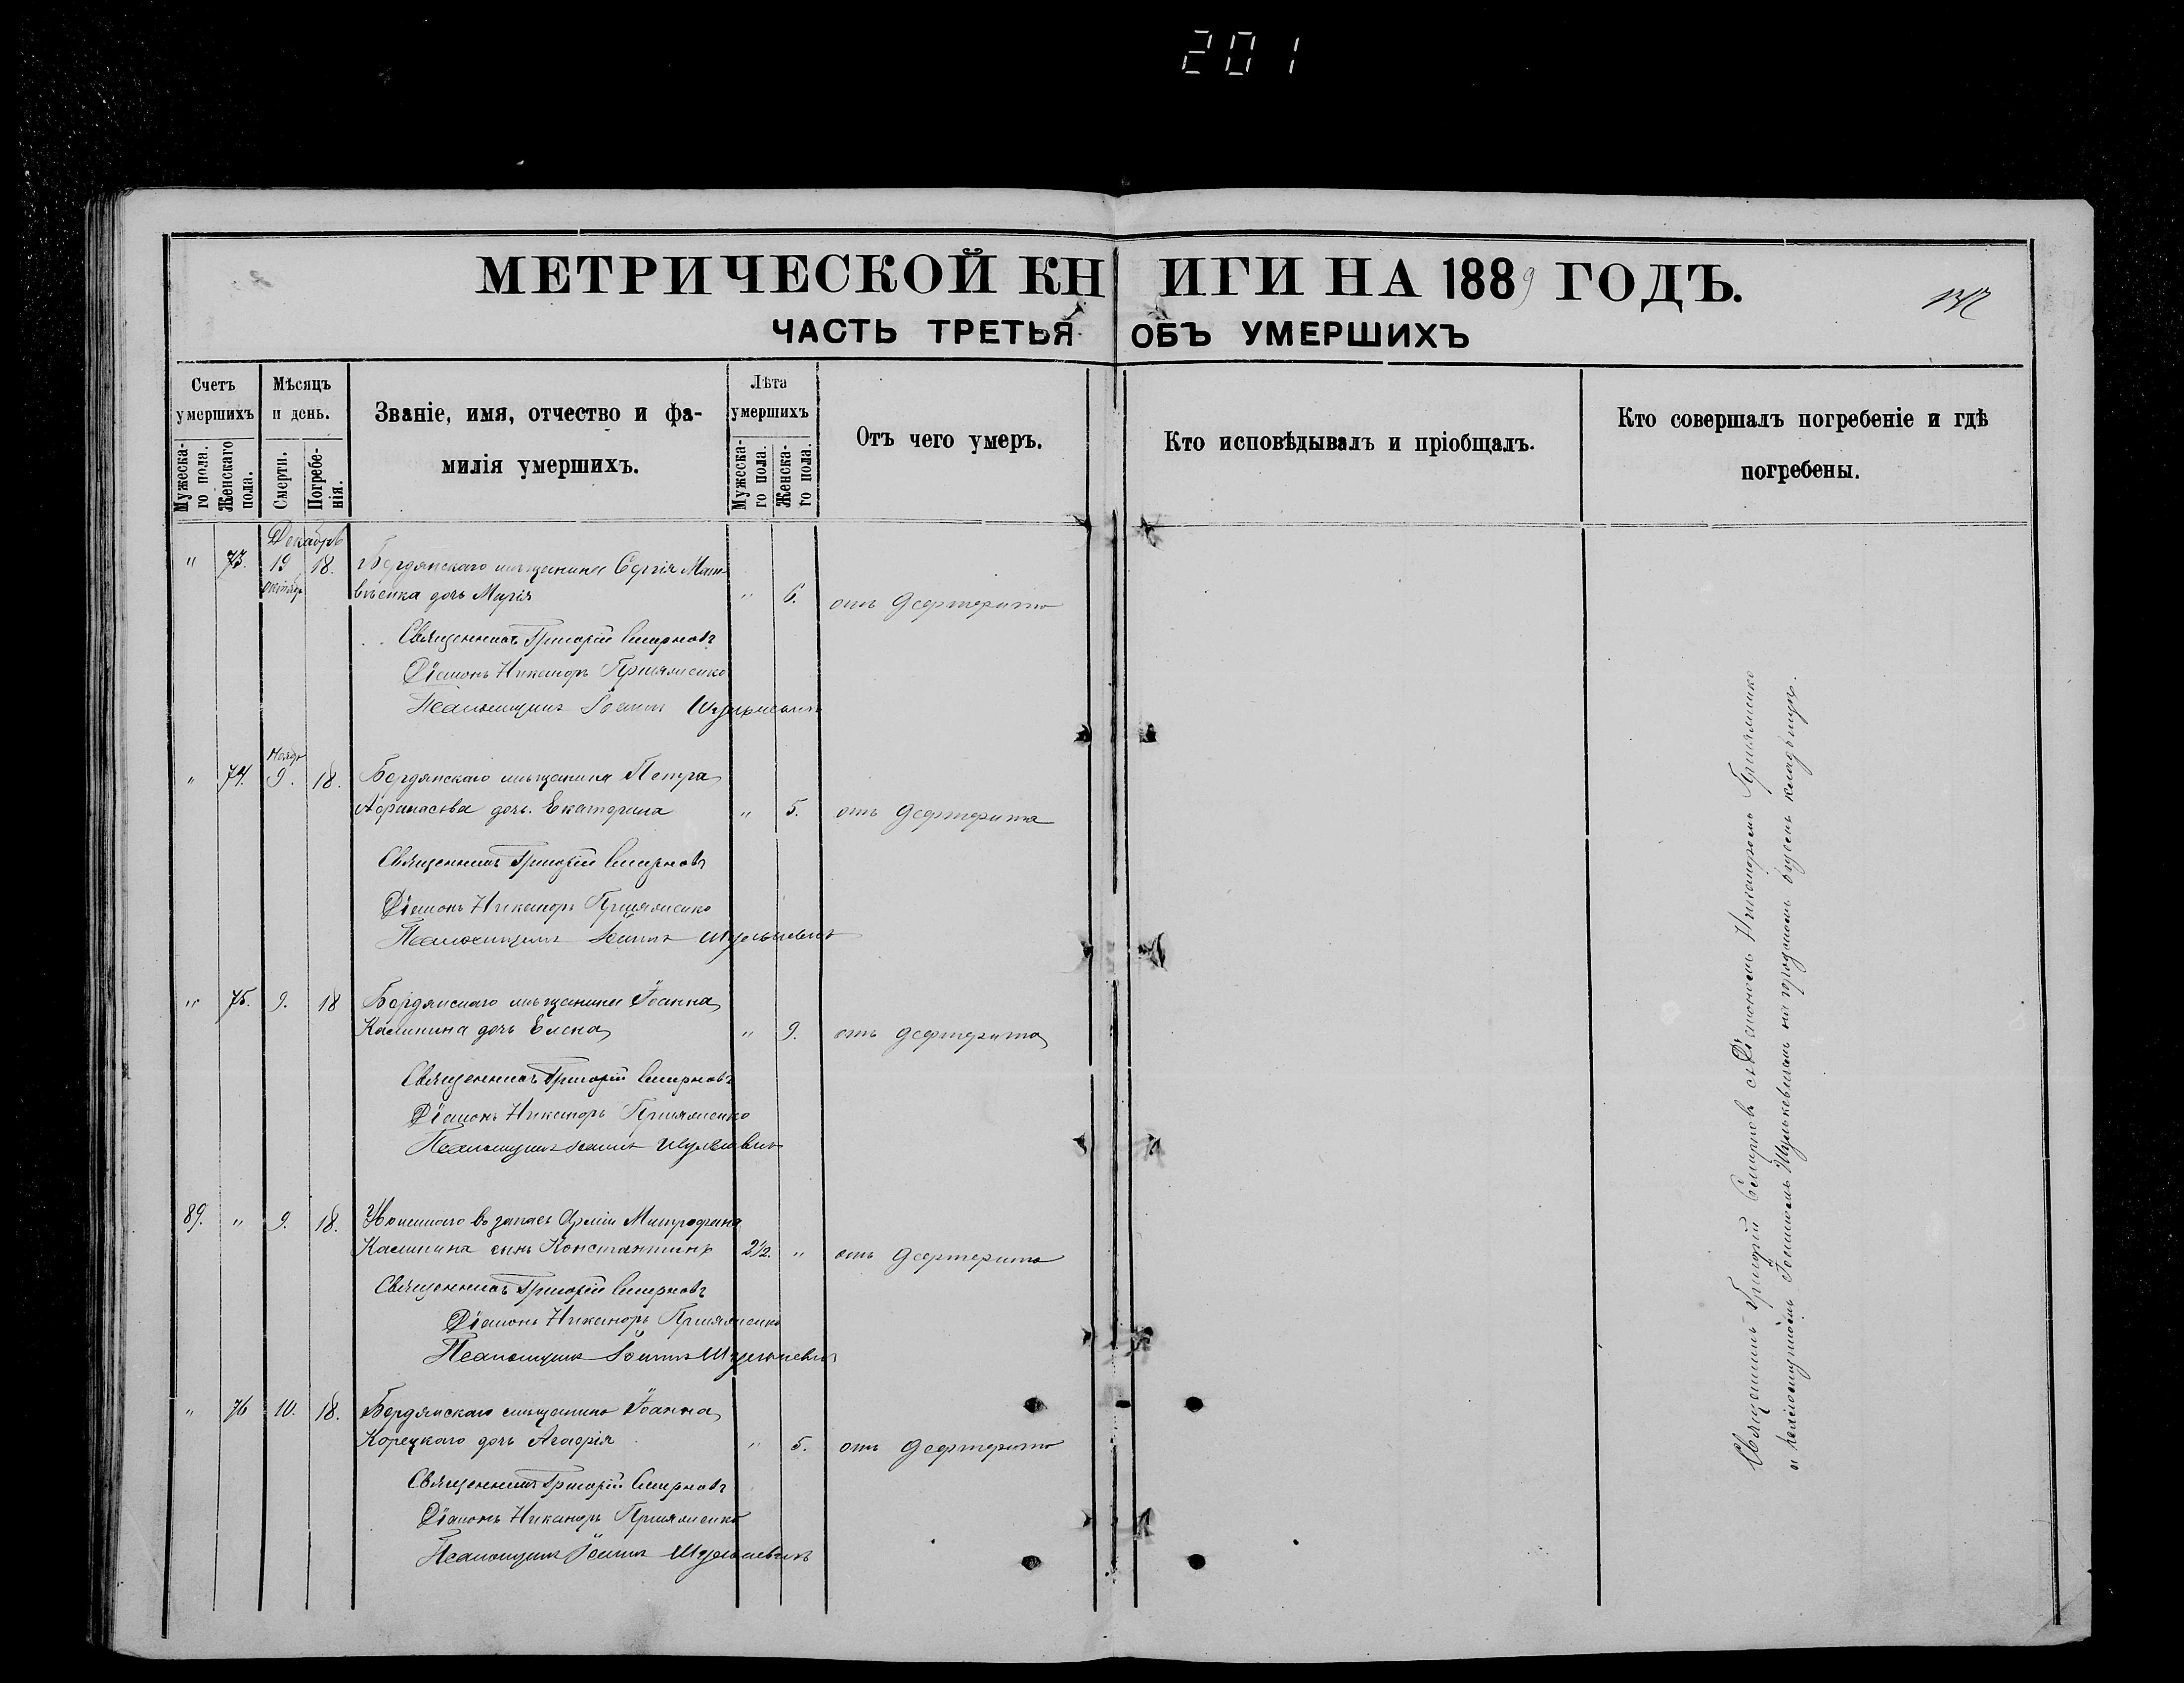 201
МЕТРИЧЕСКОЙ КНИГИ НА 1889 ГОДЪ.
ЧАСТЬ ТРЕТЬЯ ОБЪ УМЕРШИХЪ
Счетъ умершихъ
Мужеска-го пола.
Женскаго пола.
Мѣсяцъ и день.
Смерти.
Погребе-нія.
Званіе, имя, отчество и фа-
милія умершихъ.
Лѣта умершихъ
Мужеска-го пола.
Женска-го пола.
Отъ чего умеръ.
Кто исповѣдывалъ и пріобщалъ.
Кто совершалъ погребеніе и гдѣ
погребены.
Декабрь
" 73. 19 18. Бердянскаго мѣщанина Сергія Мат-
октябр вѣенка дочь Марія " 6. отъ дефтерита
Священникъ Григорій Смирновъ
Діаконъ Никаноръ
Псаломщикъ Іоаннъ Шулькевичъ
Ноябр
" 74. 9. 18. Бердянскаго мѣщанина Петра
Афанасьева дочь Екатерина " 5. отъ дефтерита
Священникъ Григорій Смирновъ
Діаконъ Никаноръ
Псаломщикъ Іоаннъ Шулькевичъ
" 75. 9. 18 Бердянскаго мѣщанина Іоанна
Калинина дочь Елена " 9. отъ дефтерита
Священникъ Григорій Смирновъ
Діаконъ Никаноръ
Псаломщикъ Іоаннъ Шулькевичъ
89. " 9. 18. Уволеннаго въ запасъ Арміи Митрофана
Калинина сынъ Константинъ 2½ " отъ дефтерита
Священникъ Григорій Смирновъ
Діаконъ Никаноръ
Псаломщикъ Іоаннъ Шулькевичъ
" 76 10. 18. Бердянскаго мѣщанина Іоанна
Корецкаго дочь Агафія " 5. отъ дефтерита
Священникъ Григорій Смирновъ
Діаконъ Никаноръ
Псаломщикъ Іоаннъ Шулькевичъ
Священникъ Григорій Смирновъ съ Діакономъ Никаноромъ
и псаломщикомъ Іоанномъ Шулькевичемъ на городскомъ кладбищѣ.